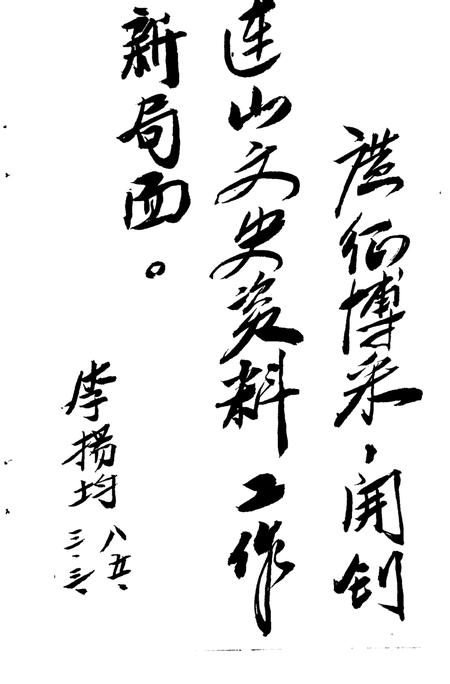 廣征博采，開创
連山文史资料工作
新局面。
李揚均
八五、
三.三、